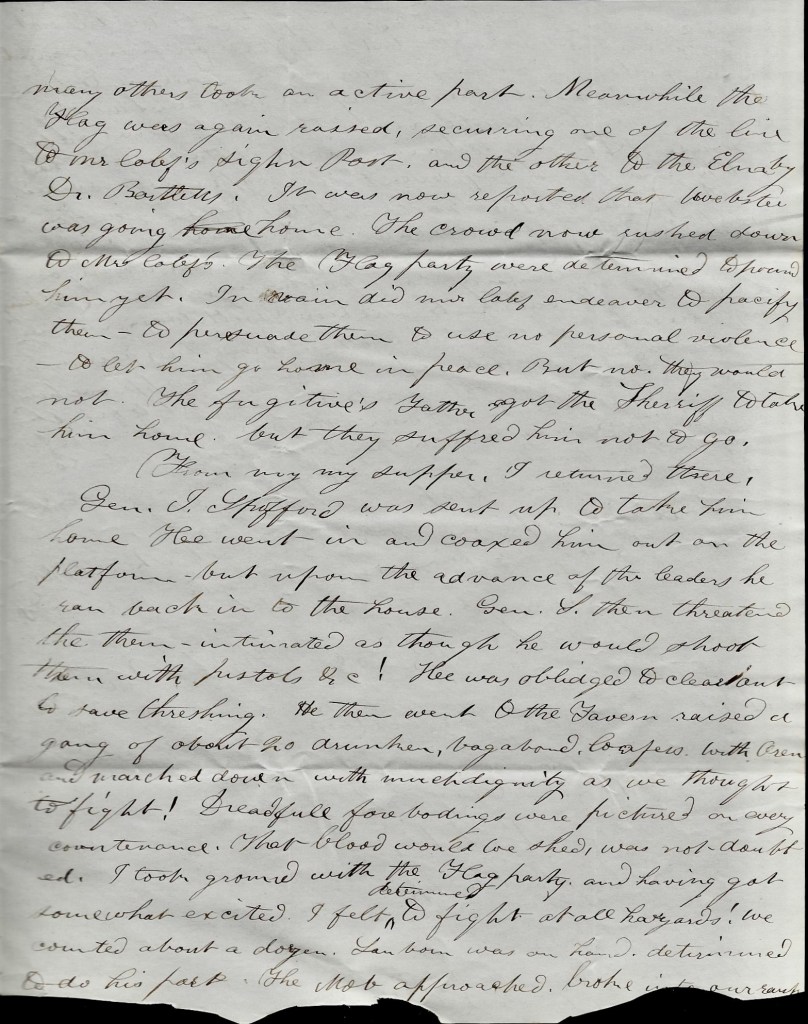 many others took an active part. Meanwhile the
Flag was again raised, securring one of the line
to mr Cobf's sighn Post, and the other to the Elm by
Dr. Bartletts. It was now reported that Webster
was going home home. The crowd now rushed down
to Mr Cobf's. The Flag party were determined to pound
him yet. In vain did mr Cobf endeaver to pacify
them - to persuade them to use no personal violence
- to let him go home in peace. But no. They would
not. The fugitive's Father got the Sherriff to take
him home. but they suffred him not to go.
From my my supper, I returned there,
Gen. J. Spofford was sent up to take him
home Hee went in and coaxed him out on the
platform - but upon the advance of the leaders he
ran back in to the house. Gen. S. then threatend
the them - intimated as though he would shoot
them with pistols &c! Hee was oblidged to clear out
to save threshing. He then went to the Tavern raised a
gang of about 20 drunken, vagabond, loafers with Oren
and marched down with much dignity as we thought
to fight! Dreadfull forebodings were pictured on every
countenance. That blood would be shed, was not doubt
ed. I took ground with the Flag party. and having got
somewhat excited I felt determined to fight at all hazards! We
counted about a dozen. Sanborn was on hand. determined
to do his part. The Mob approached, broke into our ranks